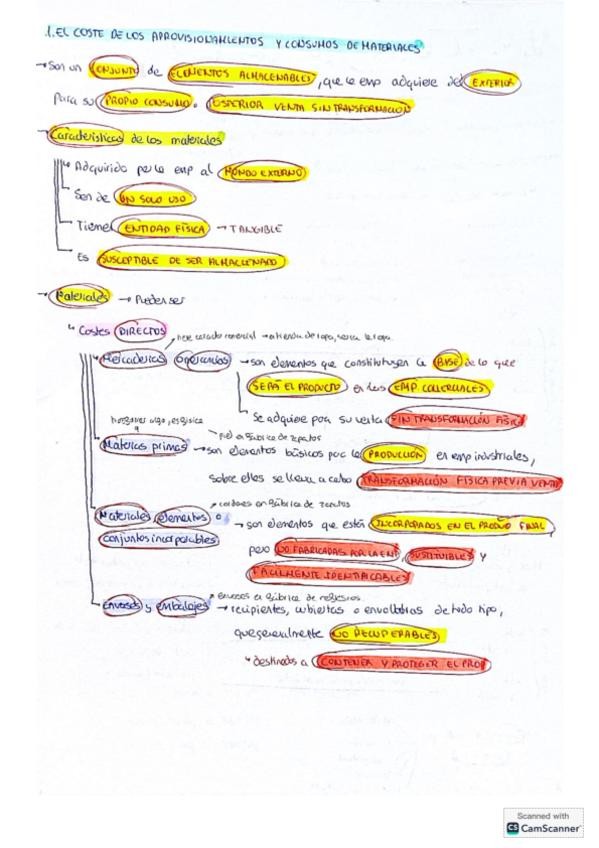 1. EL COSTE DE LOS APROVISIONAMIENTOS Y CONSUMOS DE MATERIALES
→ Son un CONJUNTO de ELEMENTOS ALMACENABLES, que la emp adquiere del EXTERIOR
Para su PROPIO CONSUMO o POSTERIOR VENTA SIN TRANSFORMACIÓN
→ Características de los materiales
Adquirido por la emp al MUNDO EXTERNO
Son de UN SOLO USO
Tienen ENTIDAD FÍSICA → TANGIBLE
Es SUSCEPTIBLE DE SER ALMACENADO
→ Materiales → Pueden ser
↳ Costes DIRECTOS
comercial → tienda de ropa, sería la ropa
Mercaderías → son elementos que constituyen la BASE de lo que
SERÁ EL PRODUCTO en las EMP. COMERCIALES
Se adquiere para su venta SIN TRANSFORMACIÓN FÍSICA
→ piel en fábrica de zapatos
Materias primas → son elementos básicos para la PRODUCCIÓN en emp industriales,
sobre ellos se lleva a cabo TRANSFORMACIÓN FÍSICA PREVIA VENTA
→ cordones en fábrica de zapatos
Materiales, elementos o → son elementos que están INCORPORADOS EN EL PRODUC FINAL,
conjuntos incorporables pero NO FABRICADAS POR LA EMP, SUSTITUIBLES Y
FÁCILMENTE IDENTIFICABLES
→ envases en fábrica de refrescos
Envases y embalajes → recipientes, cubiertas o envoltorios de todo tipo,
que generalmente NO RECUPERABLES
↳ destinados a CONTENER Y PROTEGER EL PROD
Scanned with
CS CamScanner